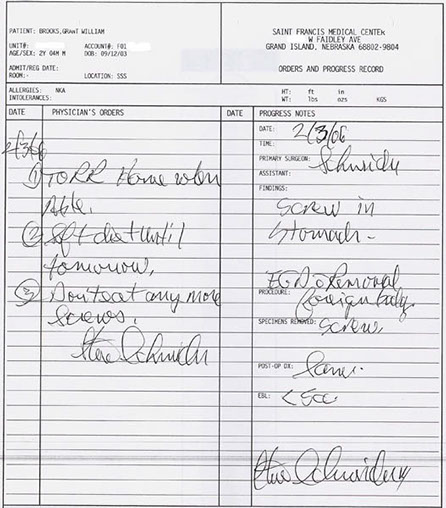 PATIENT: BROOKS,GRANT WILLIAM
UNIT#: ACCOUNT#: F01
AGE/SEX: 2Y 04M M DOB: 09/12/03
ADMIT/REG DATE:
ROOM:- LOCATION: SSS
SAINT FRANCIS MEDICAL CENTER
W FAIDLEY AVE
GRAND ISLAND, NEBRASKA 68802-9804
ORDERS AND PROGRESS RECORD
ALLERGIES: NKA
INTOLERANCES:
HT: ft in
WT: lbs ozs KGS
DATE PHYSICIAN'S ORDERS DATE PROGRESS NOTES
2/3/06
① TO RR Home when
Able.
② Soft diet until
tomorrow.
③ Don't eat any more
screws.
Steve Schneider
DATE: 2/3/06
TIME:
PRIMARY SURGEON: Schneider
ASSISTANT:
FINDINGS:
Screw in
Stomach-
EGD & Removal
PROCEDURE: foreign body.
SPECIMENS REMOVED: Screw
POST-OP DX: Same.
EBL: <5cc
Steve Schneider